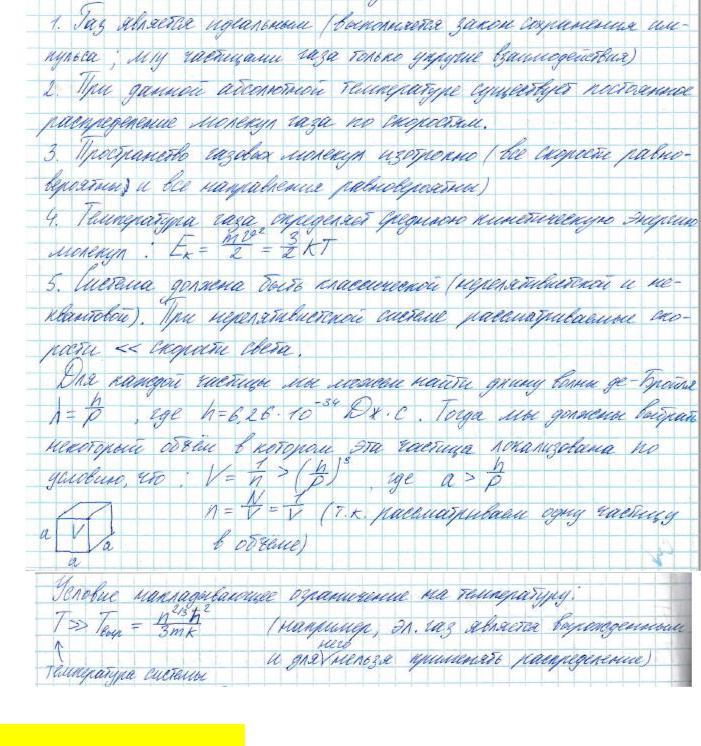 1. Газ является идеальным (выполняется закон сохранения им-
пульса ; м/у частицами газа только упругие взаимодействия)
2. При данной абсолютной температуре существует постоянное
распределение молекул газа по скоростям.
3. Пространство газовых молекул изотропно (все скорости равно-
вероятны и все направления равновероятны)
4. Температура газа определяет среднюю кинетическую энергию
молекул : Eк = mv²/2 = 3/2 KT
5. Система должна быть классической (нерелятивисткой и не-
квантовой). При нерелятивистской системе рассматриваемые ско-
рости << скорости света.
Для каждой частицы мы можем найти длину волны де-Бройля
λ = h/p , где h = 6,26 · 10⁻³⁴ Дж · с . Тогда мы должны выбрать
некоторый объём в котором эта частица локализована по
условию, что : V = 1/n > (h/p)³ , где a > h/p
n = N/V = 1/V (т.к. рассматриваем одну частицу
в объеме)
a V a
a
Условие накладывающее ограничение на температуру:
T >> Tвыр = n^(2/3) ħ²/3mk (например, эл. газ является вырожденным
и для него нельзя применять распределение)
температура системы